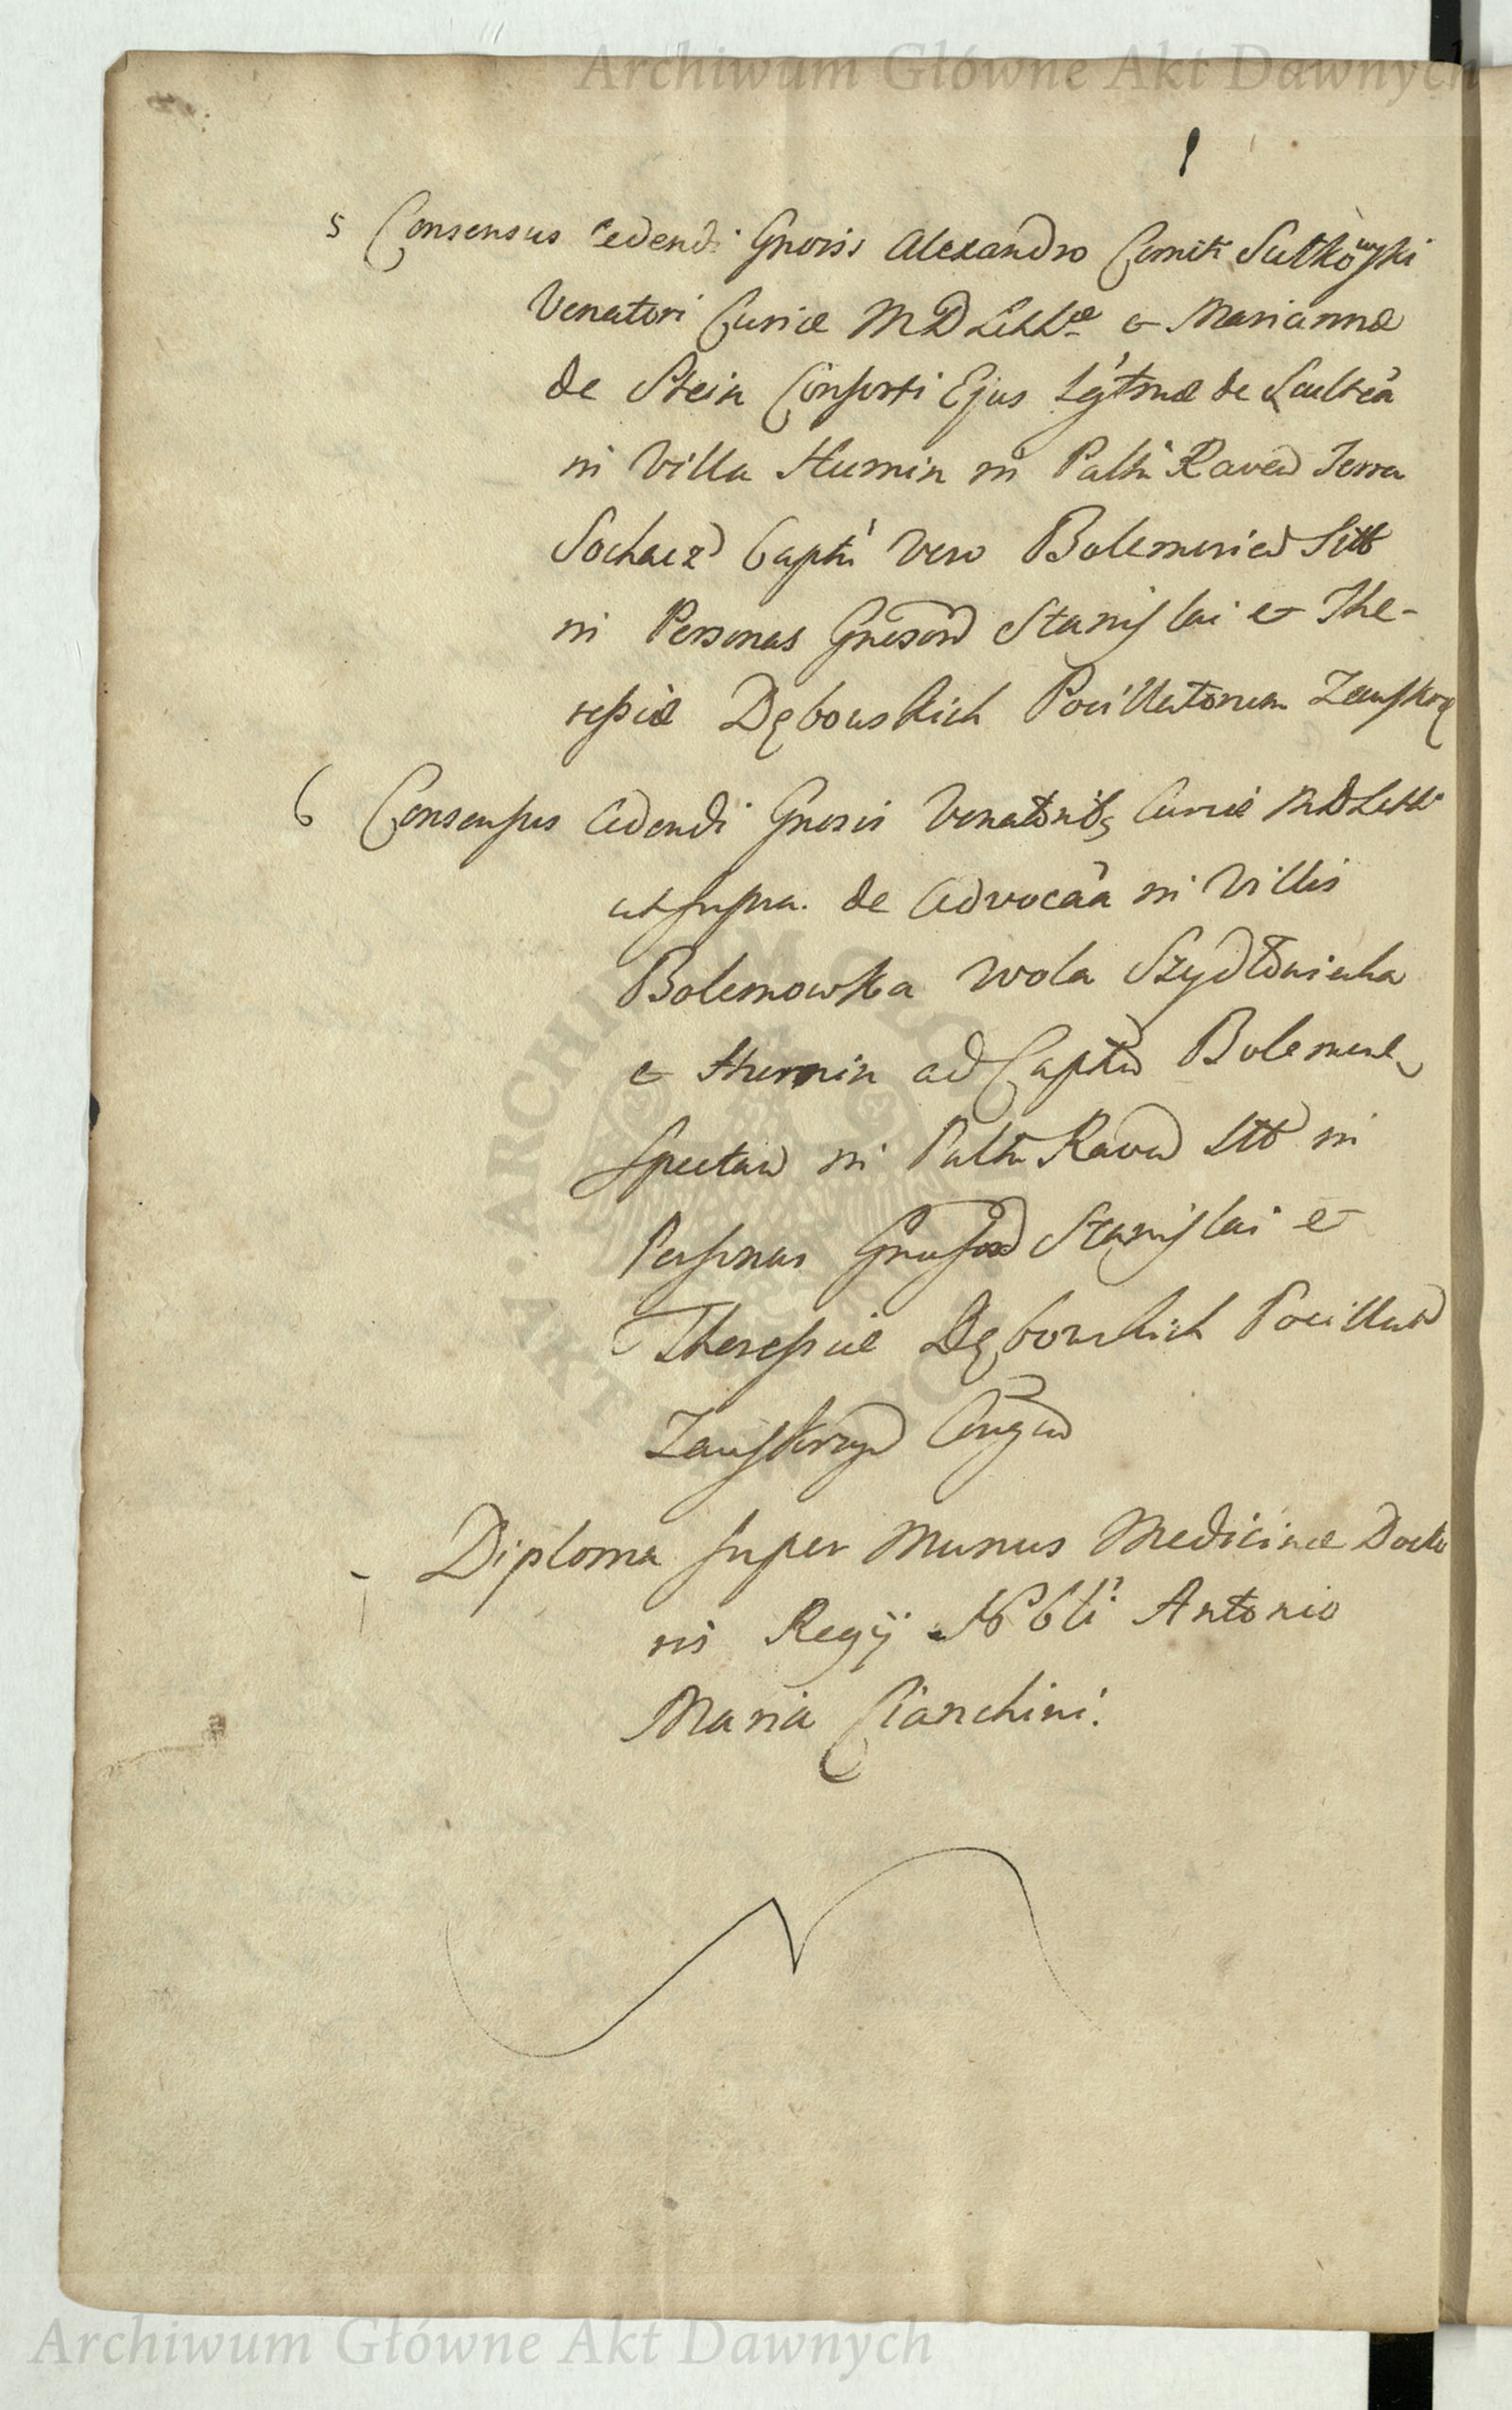 Archiwum Główne Akt Dawnych
5 Consensus Cedendi Gnosis Alexandro Comiti Sutkowski
Venatori Curiæ M D Litt̄æ & Mariannæ
de Stein Consorti Ejus Lgt̄mæ de Scultéa
in Villa Humin in Palt̄u Raveñ Terra
Sochacz Capt̄u Vero Bolemovieñ Sitt
in Personas Gnosoru Stanislai & The-
ressiæ Dębowskich Pocillatorum Zauskrzy
6 Consensus Cedendi Gnosis Venatoribs Curiæ M D Litt
ut supra. de Advocãa in Villis
Bolemowska Wola Szydłowiecka
& Humin ad Capt̄u Bolemoue
spectan in Palt̄u Raveñ Sitt in
Personas Gnosoru Stanislai &
Theressiæ Dębowskich Pocillato
Zauskrzy Conjgu
Diploma super Munus Medicinæ Docto
ris Regij Nobli Antonio
Maria Cianchini.
Archiwum Główne Akt Dawnych